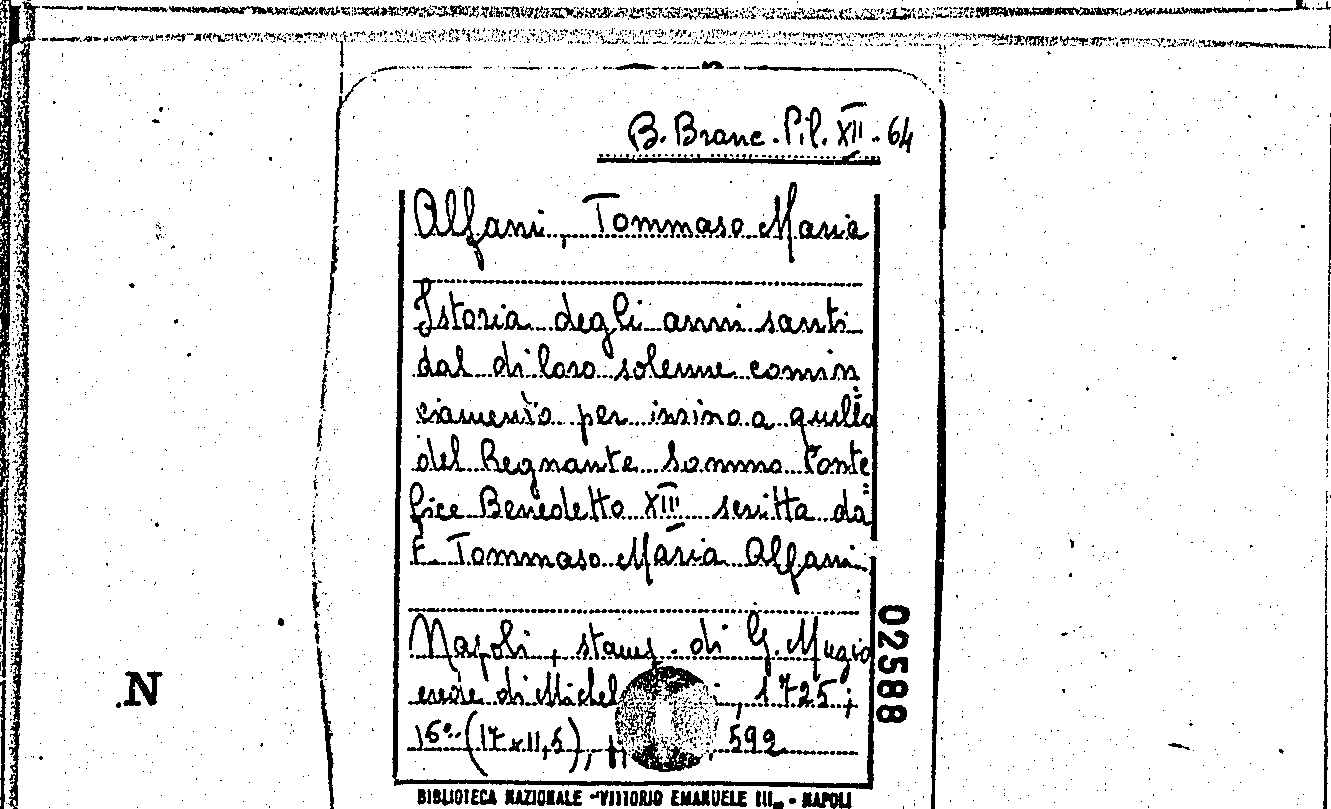 B. Branc. Pil. XII. 64
Alfani, Tommaso Maria
Istoria degli anni santi
dal di loro solenne comin
ciamento per insino a quello
del Regnante Sommo Ponte
fice Benedetto XIII scritta da
F. Tommaso Maria Alfani.
Napoli, stamp. di G. Muzio
erede di Michel , 1725;
16º (17x11,5), 592
02588
N
BIBLIOTECA NAZIONALE "VITTORIO EMANUELE III" - NAPOLI